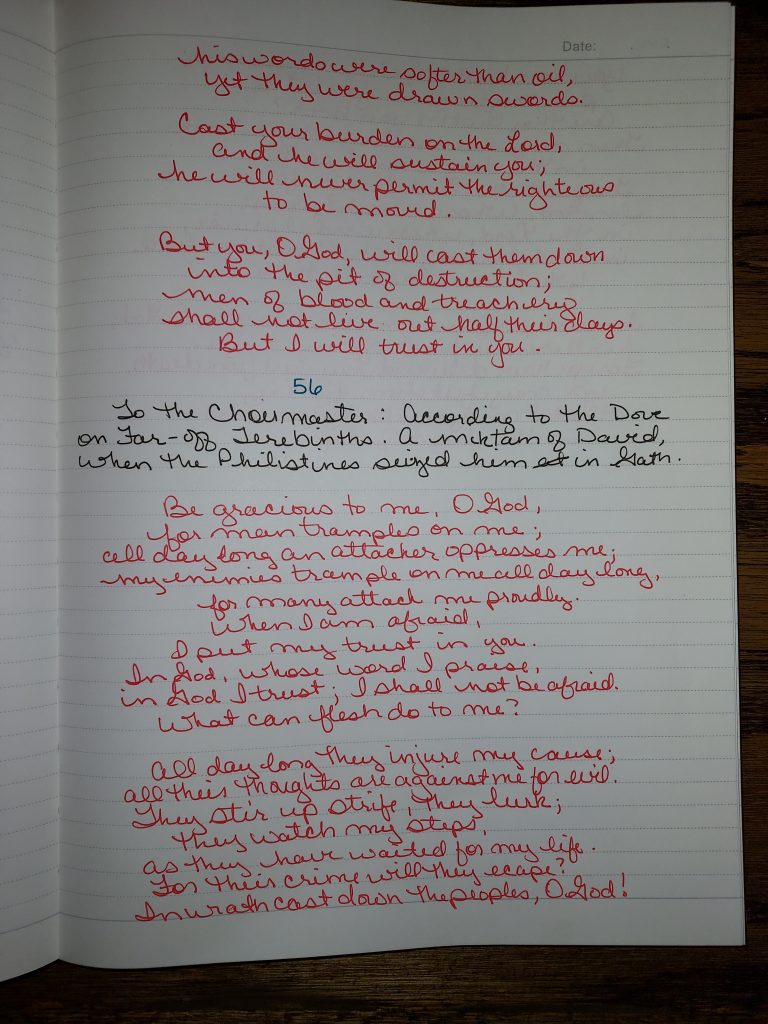 Date:
his words were softer than oil,
yet they were drawn swords.
Cast your burden on the Lord,
and he will sustain you;
he will never permit the righteous
to be moved.
But you, O God, will cast them down
into the pit of destruction;
men of blood and treachery
shall not live out half their days.
But I will trust in you.
56
To the Choirmaster: According to the Dove
on Far-off Terebinths. A miktam of David,
when the Philistines seized him in Gath.
Be gracious to me, O God,
for man tramples on me;
all day long an attacker oppresses me;
my enemies trample on me all day long,
for many attack me proudly.
When I am afraid,
I put my trust in you.
In God, whose word I praise,
in God I trust; I shall not be afraid.
What can flesh do to me?
All day long they injure my cause;
all their thoughts are against me for evil.
They stir up strife, they lurk;
they watch my steps,
as they have waited for my life.
For their crime will they ecape?
In wrath cast down the peoples, O God!